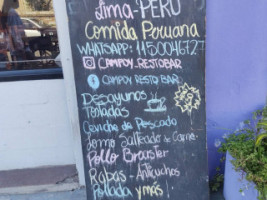 Lima-PERÚ
Comida Peruana
WHATSAPP: 1150046727
CAMPOY_RESTOBAR
CAMPOY RESTOBAR
Desayunos
Tostadas
Ceviche de Pescado
Lomo Salteado de Carne
Pollo Broaster
Rabas - Antichuchos
Helada y más!